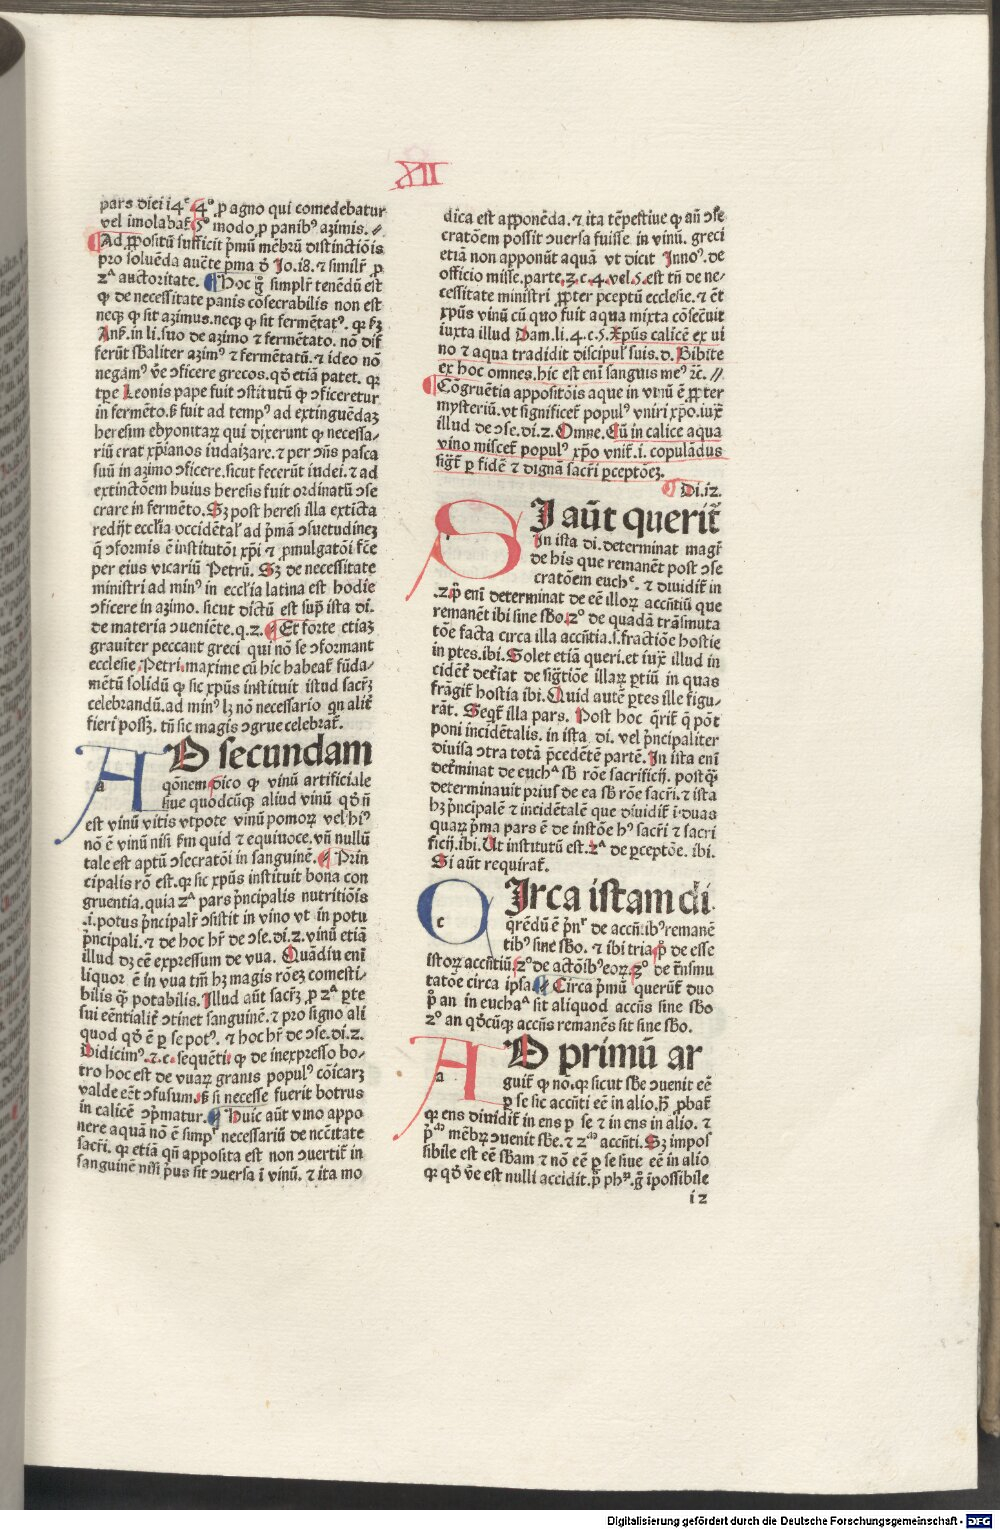 XII
pars diei i4ᵉ. 4°. ꝑ agno qui comedebatur
vel imolabat̃ 5° modo. ꝓ panibꝰ azimis. //
¶ Ad ꝓpositũ sufficit p̃mũ mẽbrũ distinctiõis
pro soluẽda aucte p̃ma ꝟ Jo. i8. ⁊ similr̃ ꝓ
2ᵃ auctoritate. ¶ Hoc g̊ simplr̃ tenẽdũ est
ꝙ de necessitate panis cõsecrabilis non est
neqꝫ ꝙ sit azimus. neqꝫ ꝙ sit fermẽtatꝰ. qꝛ ẜꝫ
Anẜ. in li. suo de azimo ⁊ fermẽtato. nõ dif
ferũt sb̃aliter azimꝰ ⁊ fermẽtatũ. ⁊ ideo nõ
negamꝰ ꝟe ɔficere grecos. qð etiã patet. qꝛ
tꝑe Leonis pape fuit ɔstitutũ ꝙ ɔficeretur
in fermẽto. ẜ fuit ad tempꝰ ad extinguẽdaꝫ
heresim ebyonitaꝝ qui dixerunt ꝙ necessa⸗
riũ crat xp̃ianos iudaizare. ⁊ per ɔñs pasca
suũ in azimo ɔficere. sicut fecerũt iudei. ⁊ ad
extinctõem huius heresis fuit ordinatũ ɔse
crare in fermẽto. Sꝫ post heresi illa extĩcta
redijt eccl̃ia occidẽtal̃ ad p̃mã ɔsuetudineꝫ
q̃ ɔformis ẽ institutõi xp̃i ⁊ ꝓmulgatõi fcẽ
per eius vicariũ Petrũ. Sꝫ de necessitate
ministri ad minꝰ in eccl̃ia latina est hodie
ɔficere in azimo. sicut dictũ est sup̃ ista di.
de materia ɔueniẽte. q. 2. ¶ Et forte etiaꝫ
grauiter peccant greci qui nõ se ɔformant
ecclesie Petri. maxime cũ hic habeat̃ fũda⸗
mẽtũ solidũ ꝙ sic xp̃us instituit istud sacr̃ꝫ
celebrandũ. ad minꝰ lꝫ nõ necessario qn alit̃
fieri possꝫ. tñ sic magis ɔgrue celebrat̃.
AD secundam
a
qõnem dico ꝙ vinũ artificiale
siue quodcũqꝫ aliud vinũ qð ñ
est vinũ vitis vtpote vinũ pomoꝝ vel hiꝰ
nõ ẽ vinũ nisi ẜm quid ⁊ equiuoce. vñ nullũ
tale est aptũ ɔsecratõi in sanguinẽ. ¶ Prin
cipalis rõ est. qꝛ sic xp̃us instituit bona con
gruentia. quia 2ᵃ pars p̃ncipalis nutritiõis
.i. potus p̃ncipalr̃ ɔsistit in vino vt in potu
p̃ncipali. ⁊ de hoc hr̃ de ɔse. di. 2. vinũ etiã
illud dꝫ cẽ expressum de vua. Quãdiu enĩ
liquor ẽ in vua tm̃ hꝫ magis rõeꝫ comesti⸗
bilis q̃ꝫ potabilis. Illud aũt sacr̃ꝫ ꝓ 2ᵃ ꝑte
sui eẽntialit̃ ɔtinet sanguinẽ. ⁊ pro signo ali
quod qð ẽ ꝑ se potꝰ. ⁊ hoc hr̃ de ɔse. di. 2.
Didicimꝰ. ⁊. c. sequẽti. ꝙ de inexpresso bo⸗
tro hoc est de vuaꝝ granis populꝰ cõicarꝫ
valde eẽt ɔfusum. ẜ si necesse fuerit botrus
in calicẽ ɔp̃matur. ¶ Huic aũt vino appo
nere aquã nõ ẽ simpꝉ necessariũ de ncc̃itate
sacr̃i. qꝛ etiã qñ apposita est non ɔuertit̃ in
sanguinẽ nisi p̃us sit ɔuersa ĩ vinũ. ⁊ ita mo
dĩca est apponẽda. ⁊ ita tẽpestiue ꝙ añ ɔse
cratõem possit ɔuersa fuisse in vinũ. greci
etiã non apponũt aquã vt dicit Innoꝰ. de
officio misse. parte. 3. c. 4. vel. 5. est tñ de ne⸗
cessitate ministri ꝓpter p̃ceptũ ecclesie. ⁊ ẽt
xp̃us vinũ cũ quo fuit aqua mixta cõsecuit
iuxta illud Dam. li. 4. c. 5. Xp̃us calicẽ ex vi
no ⁊ aqua tradidit discipul̃ suis. d. Bibite
ex hoc omnes. hic est enĩ sanguis meꝰ ⁊c̃. //
¶ Cõgruẽtia appositõis aque in vinũ ẽ ꝓpter
mysteriũ. vt significet̃ populꝰ vniri xp̃o. iuxꝭ
illud de ɔse. di. 2. Omne. Cũ in calice aqua
vino miscet̃ populꝰ xp̃o vnit̃. i. copulãdus
sigt̃ ꝑ fidẽ ⁊ dignã sacr̃i ꝑceptõeꝫ.
¶ Di. i2.
SI aũt querit̃
in ista di. determinat magr̃
de his que remanẽt post ɔse
cratõem euchᵉ. ⁊ diuidit̃ in
.2. p̊ enĩ determinat de eẽ illoꝝ accñtiũ que
remanẽt ibi sine sb̃o. 2° de quadã trãsmuta
tõe facta circa illa accñtia. s. fractiõe hostie
in ptes. ibi. Solet etiã queri. et iuxꝭ illud in
cidẽt̃ det̃iat de sigt̃iõe illaꝝ ꝑtiũ in quas
frãgit̃ hostia ibi. Quid autẽ ꝑtes ille figu⸗
rãt. Seqt̃ illa pars. Post hoc q̃rit̃ q̃ põt
poni incidẽtalis. in ista di. vel p̃ncipaliter
diuisa ɔtra totã p̃cedẽtẽ partẽ. In ista enĩ
det̃minat de euchᵃ sb̃ rõe sacrificij. postq̃ꝫ
determinauit prius de ea sb̃ rõe sacr̃i. ⁊ ista
hꝫ p̃ncipalẽ ⁊ incidẽtalẽ que diuidit̃ i duas
quaꝝ p̃ma pars ẽ de instõe hꝰ sacr̃i ⁊ sacri
ficij. ibi. Ut institutũ est. 2ᵃ de ꝑceptõe. ibi.
Si aũt requirat̃.
CIrca istam di.
c
qrẽdũ ẽ p̃nꝉ de accñtibꝰ remanẽ
tibꝰ sine sb̃o. ⁊ ibi tria p̊ de esse
istoꝝ accñtiũ. 2° de actõibꝰ eoꝝ. 3° de tñsmu
tatõe circa ipsa. ¶ Circa p̃mũ querũt̃ duo
p̊ an in euchaᵃ sit aliquod accñs sine sb̃o
2° an qðcũqꝫ accñs remanẽs sit sine sb̃o.
AD primũ ar
a
guit̃ ꝙ no. qꝛ sicut sb̃e ɔuenit eẽ
ꝑ se sic accñti eẽ in alio. H̊ ꝓbat̃
qꝛ ens diuidit̃ in ens ꝑ se ⁊ in ens in alio. ⁊
p̃ᵐ mẽbꝝ ɔuenit sb̃e. ⁊ 2ᵐ accñti. Sꝫ impos
sibile est eẽ sb̃am ⁊ nõ eẽ ꝑ se siue eẽ in alio
qꝛ qð ꝟe est nulli accidit. p̊ phꝝ. g̊ ĩpossibile
i2
Digitalisierung gefördert durch die Deutsche Forschungsgemeinschaft - DFG